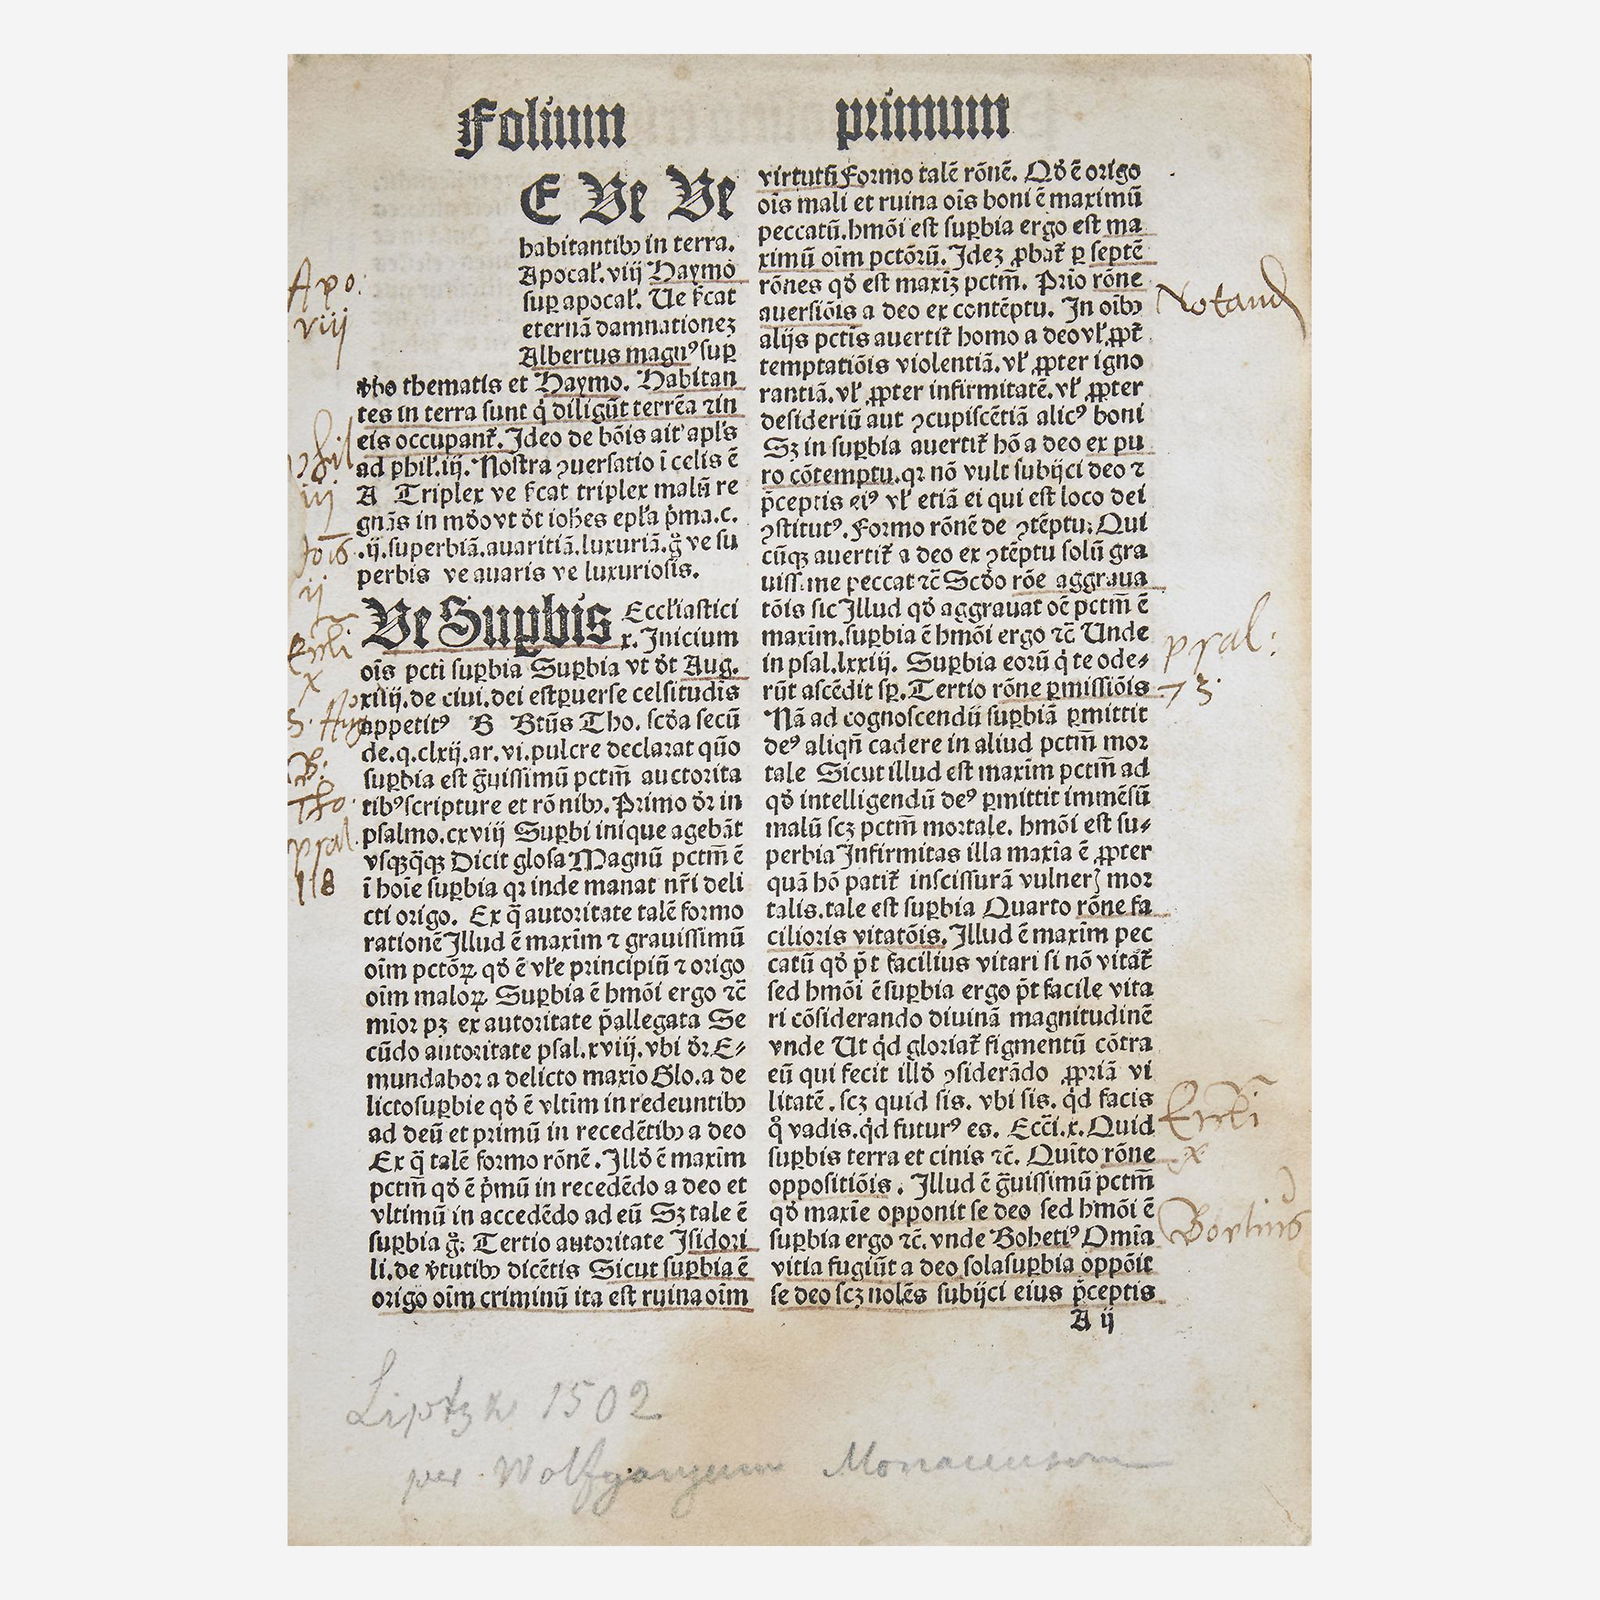 Folium primum
E Ve Ve
habitantibꝰ in terra.
Apocal̛. viij Haymo
sup apocal̛. Ue ſcat
eternā damnationeꝫ
Albertus magnꝰ sup
tho thematis et Haymo. Habitan
tes in terra sunt q̇ diligūt terrēa ⁊ in
eis occupant̛. Ideo de bōis ait apl̛s
ad phil̛. iij. Nostra ꝯversatio ī celis ē
A Triplex ve ſcat triplex malū re
gnās in mōdo vt d̛t iohēs epl̛a p̛ma. c.
.ij. superbiā. avaritiā. luxuriā. g̊ ve su
perbis ve avaris ve luxuriosis.
Ve Suꝑbis Eccl̛iastici
x. Inicium
oīs pcti suꝑbia Suꝑbia vt d̛t Aug.
xiiij. de civi. dei est ꝑverse celsitudis
appetitꝰ B Btūs Tho. scd̛a secū
de. q. clxij. ar. vi. pulcre declarat quō
suꝑbia est g̃uissimū pctm̄ auctorita
tibꝰ scripture et rōnibꝫ. Primo d̛r in
psalmo. cxviij Suꝑbi inique agebāt
vsqꝫq̄qꝫ Dicit glosa Magnū pctm̄ ē
ī hoīe suꝑbia qꝛ inde manat nr̄i deli
cti origo. Ex q̄ autoritate talē formo
rationē Illud ē maxīm ⁊ gravissimū
oīm pctōꝝ qd̛ ē vl̛e principiū ⁊ origo
oīm maloꝝ. Suꝑbia ē hmōi ergo ⁊c̄
mīor pꝫ ex autoritate p̄allegata Se
cūdo autoritate psal. xviij. vbi d̛r. E⸗
mundabor a delicto maxīo Glo. a de
licto suꝑbie qd̛ ē vltīm in redeuntibꝫ
ad deū et primū in recedētibꝫ a deo
Ex q̄ talē formo rōnē. Illd̛ ē maxīm
pctm̄ qd̛ ē p̛mū in recedēdo a deo et
vltimū in accedēdo ad eū Sꝫ tale ē
suꝑbia g̊. Tertio autoritate Isidori
li. de v̛tutibꝫ dicētis Sicut suꝑbia ē
origo oīm criminū ita est ruina oīm
virtutū Formo talē rōnē. Qd̛ ē origo
oīs mali et ruina oīs boni ē maximū
peccatū. hmōi est suꝑbia ergo est ma
ximū oīm pctōrū. Ideꝫ ꝓbat̛ ꝑ septē
rōnes qd̛ est maxiꝫ pctm̄. Prīo rōne
aversiōis a deo ex contēptu. In oībꝫ
alijs pctīs avertit̛ homo a deo vl̛ ꝓpt̛
temptatiōis violentiā. vl̛ ꝓpter igno
rantiā. vl̛ ꝓpter infirmitatē. vl̛ ꝓpter
desideriū aut ꝯcupiscētiā alicꝰ boni
Sꝫ in suꝑbia avertit̛ hō a deo ex pu
ro cōtemptu. qꝛ nō vult subijci deo ⁊
p̄ceptis eiꝰ vl̛ etiā ei qui est loco dei
ꝯstitutꝰ. Formo rōnē de ꝯtēptu: Qui
cūqꝫ avertit̛ a deo ex ꝯtēptu solū gra
vissime peccat ⁊c̄ Scd̛o rōe aggrava
tōis sic Illud qd̛ aggravat oē pctm̄ ē
maxīm. suꝑbia ē hmōi ergo ⁊c̄ Unde
in psal. lxxiij. Suꝑbia eorū q̇ te ode⸗
rūt ascēdit sꝑ. Tertio rōne ꝑmissiōis
Nā ad cognoscendū suꝑbiā ꝑmittit
deꝰ aliqn̄ cadere in aliud pctm̄ mor
tale Sicut illud est maxīm pctm̄ ad
qd̛ intelligendū deꝰ ꝑmittit immēsū
malū scꝫ pctm̄ mortale. hmōi est su⸗
perbia Infirmitas illa maxīa ē ꝓpter
quā hō patit̛ inscissurā vulneꝝ mor
talis. tale est suꝑbia Quarto rōne fa
cilioris vitatōis. Illud ē maxīm pec
catū qd̛ p̄t facilius vitari si nō vitat̛
sed hmōi ē suꝑbia ergo p̄t facile vita
ri cōsiderando divinā magnitudinē
vnde Ut q̇d gloriat̛ figmentū cōtra
eū qui fecit illd̛ ꝯsiderādo ꝓpriā vi
litatē. scꝫ quid sis. vbi sis. q̇d facis
q̊ vadis. q̇d futurꝰ es. Ecci̅. x. Quid
suꝑbis terra et cinis ⁊c̄. Quīto rōne
oppositiōis. Illud ē g̃uissimū pctm̄
qd̛ maxīe opponit se deo sed hmōi ē
suꝑbia ergo ⁊c̄. vnde Bohetiꝰ Omīa
vitia fugiūt a deo sola suꝑbia oppōit
se deo scꝫ nolēs subijci eius p̄ceptis
A ij
Apo:
viij
phil
iij
Joīs
ij
Eccli
x
S. Aug
B:
Tho:
psal.
118
Notand
psal:
73.
Eccli
x
Boetius
Liptzk 1502
per Wolfgangum Monacensem